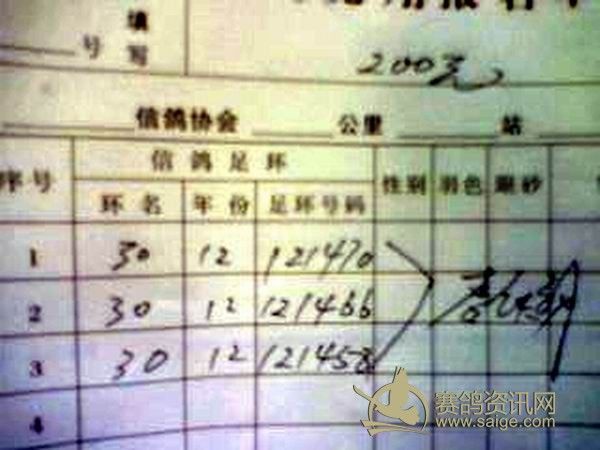 填写
号
200元
信鸽协会 公里 站
序号 信鸽足环 性别 羽色 眼砂
环名 年份 足环号码
1 30 12 121470
2 30 12 121466
3 30 12 121458
4
赛鸽资讯网
www.saige.com